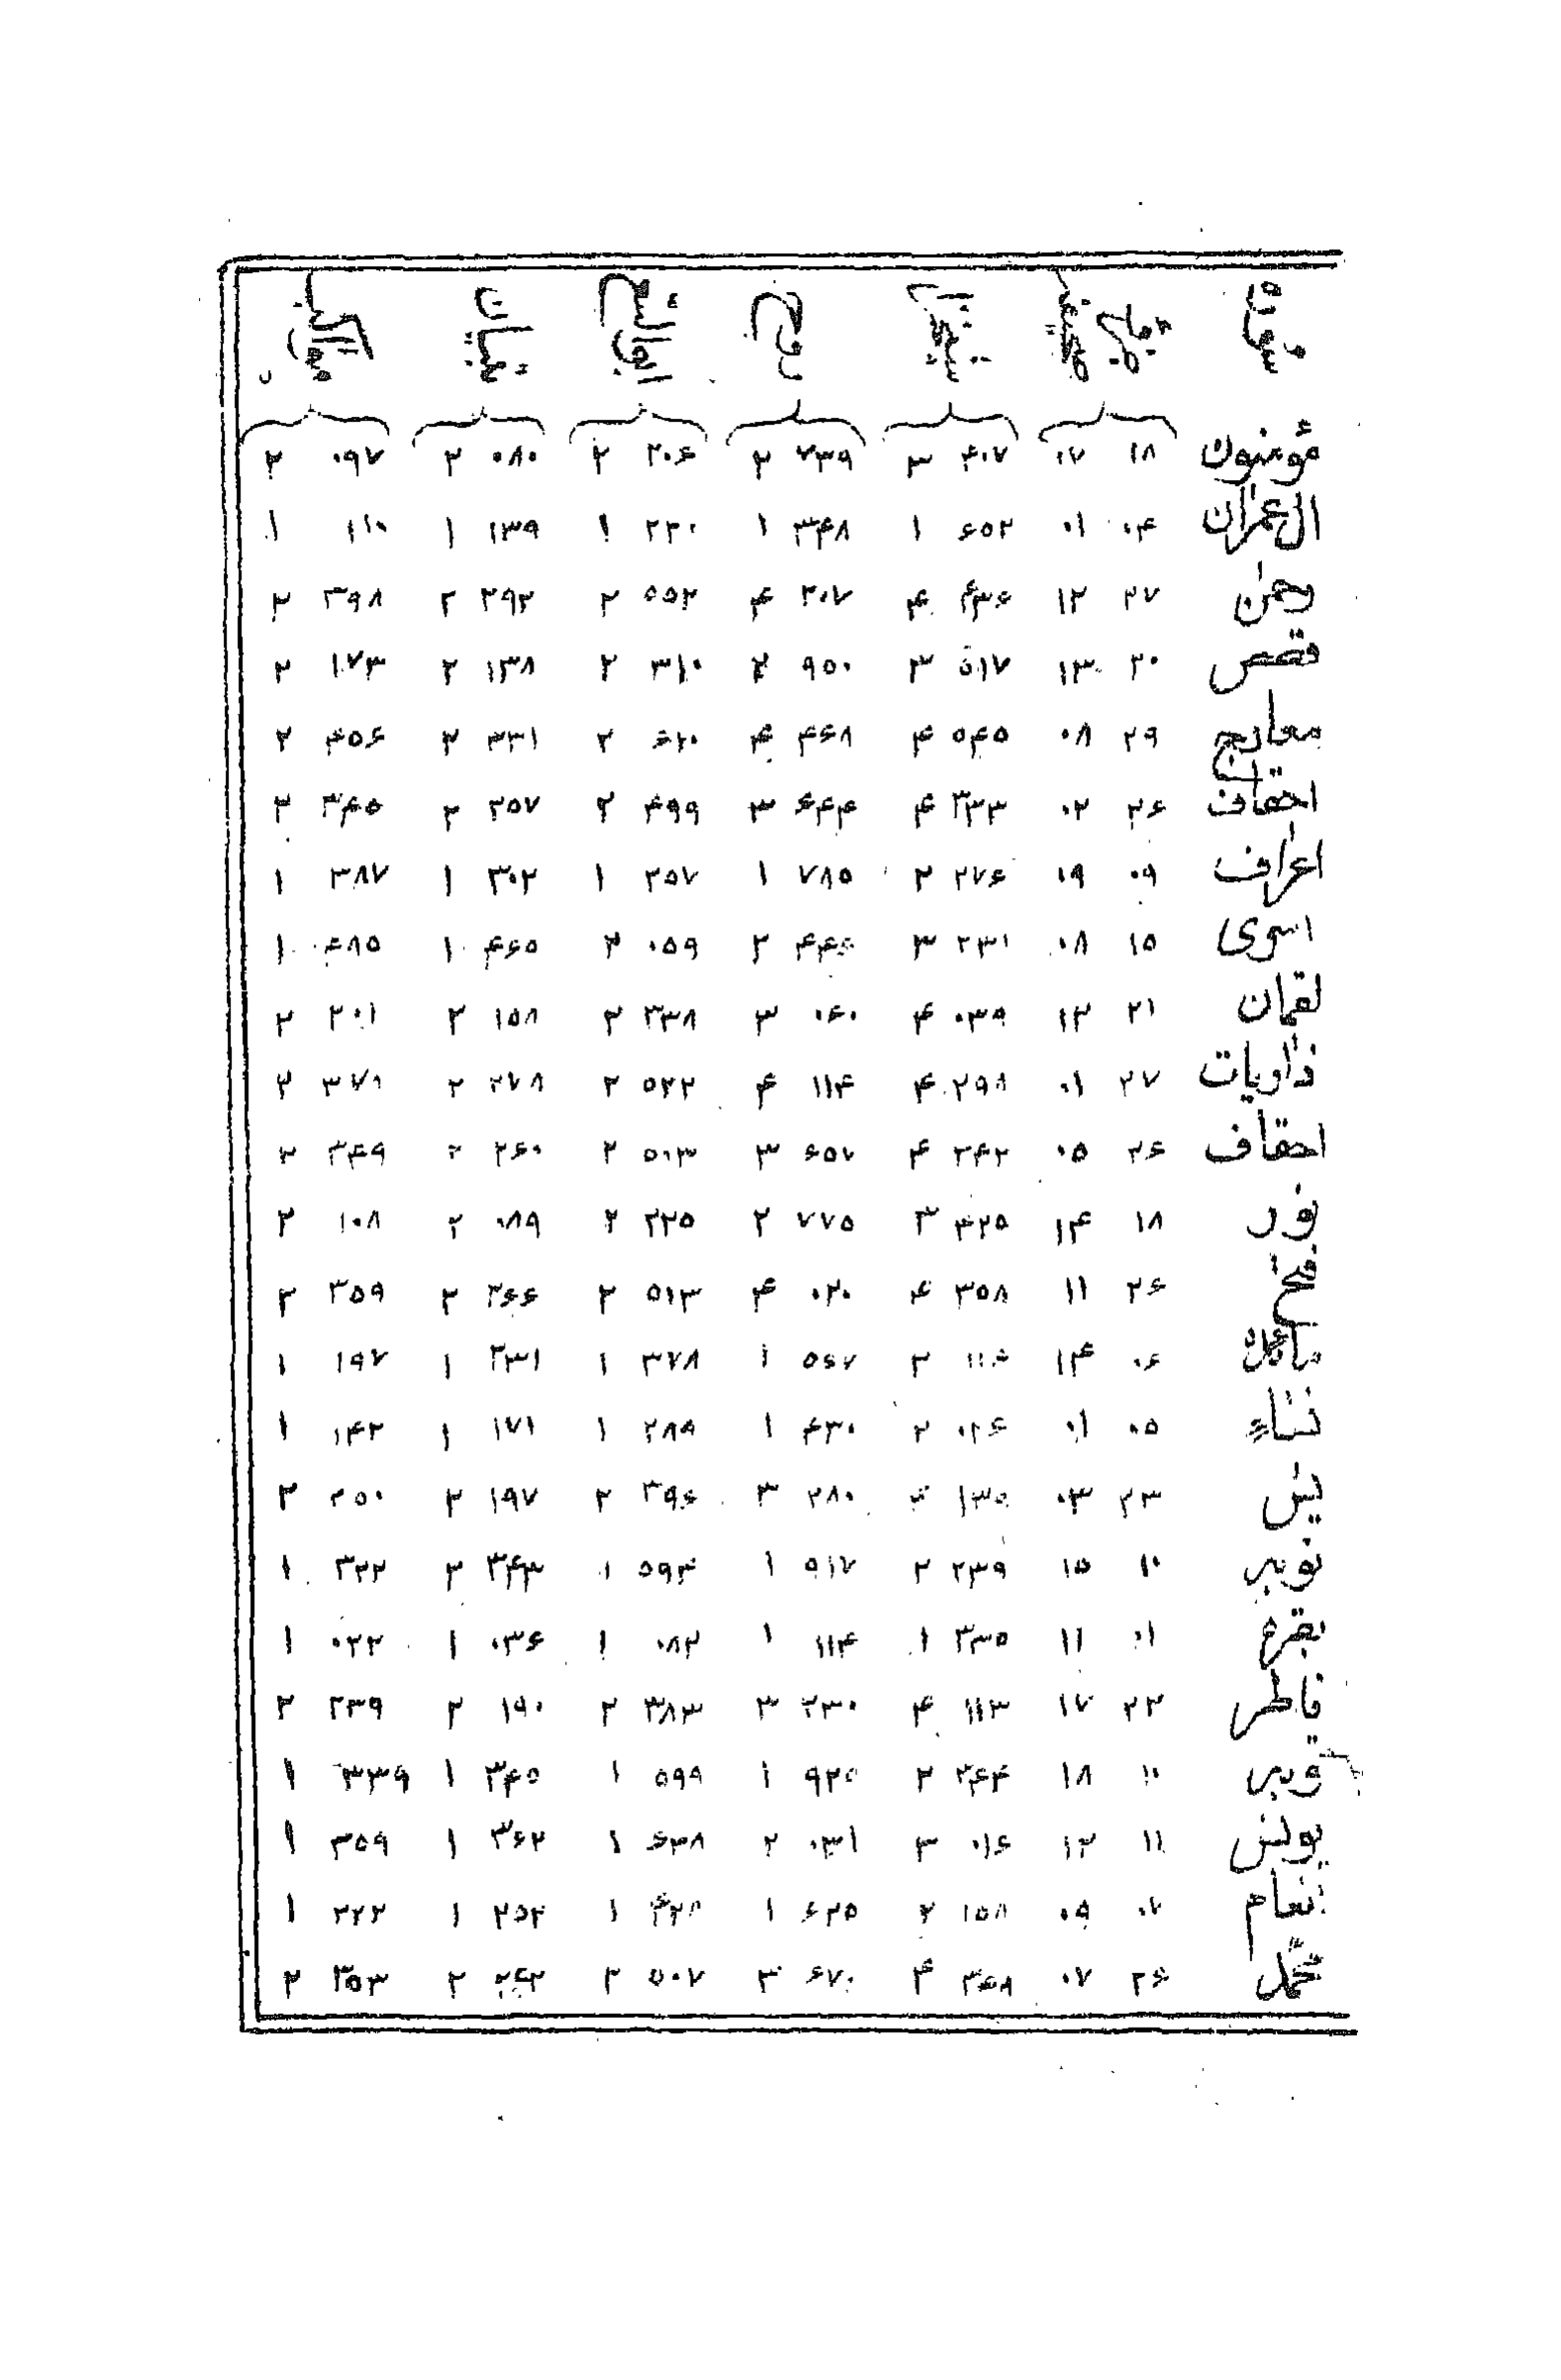 مؤمنون ۱۸ ۱۷ ۴۰۷ ۳ ۷۳۹ ۲ ۲۰۶ ۲ ۰۸۰ ۲ ۰۹۷ ۲
ال عمران ۰۴ ۰۱ ۶۵۲ ۱ ۳۴۸ ۱ ۲۲۰ ۱ ۱۳۹ ۱ ۱۱۰ ۱
رحمن ۲۷ ۱۲ ۴۳۶ ۴ ۲۰۷ ۴ ۵۵۲ ۲ ۲۹۲ ۲ ۳۹۸ ۲
قصص ۲۰ ۱۳ ۵۱۷ ۳ ۹۵۰ ۲ ۳۱۰ ۲ ۱۳۸ ۲ ۱۷۳ ۲
معارج ۲۹ ۰۸ ۵۴۵ ۴ ۴۶۸ ۴ ۶۲۰ ۲ ۳۳۱ ۲ ۴۵۶ ۲
احقاف ۲۶ ۰۲ ۳۳۳ ۴ ۶۴۴ ۳ ۴۹۹ ۲ ۲۵۷ ۲ ۳۴۵ ۲
اعراف ۰۹ ۰۹ ۲۷۶ ۲ ۷۸۵ ۱ ۲۵۷ ۱ ۳۰۲ ۱ ۳۸۷ ۱
اسری ۱۵ ۰۸ ۲۳۱ ۳ ۴۴۶ ۲ ۰۵۹ ۲ ۴۶۵ ۱ ۴۸۵ ۱
لقمان ۲۱ ۱۲ ۰۳۹ ۴ ۰۶۰ ۳ ۳۳۸ ۲ ۱۵۸ ۲ ۲۰۱ ۲
ذاریات ۲۷ ۰۱ ۲۹۸ ۴ ۱۱۴ ۴ ۵۲۲ ۲ ۲۷۸ ۲ ۳۷۱ ۲
احقاف ۲۶ ۰۵ ۳۴۲ ۴ ۶۵۷ ۳ ۵۰۳ ۲ ۲۶۰ ۲ ۳۴۹ ۲
نور ۱۸ ۱۴ ۴۲۵ ۳ ۷۷۵ ۲ ۲۲۵ ۲ ۰۸۹ ۲ ۱۰۸ ۲
فتح ۲۶ ۱۱ ۳۵۸ ۴ ۰۲۰ ۴ ۵۱۳ ۲ ۲۶۶ ۲ ۳۵۹ ۲
مائده ۰۶ ۱۴ ۱۱۶ ۲ ۵۶۷ ۱ ۳۷۸ ۱ ۲۳۱ ۱ ۱۹۷ ۱
نساء ۰۵ ۰۱ ۰۲۶ ۲ ۴۳۰ ۱ ۲۸۹ ۱ ۱۷۱ ۱ ۱۴۲ ۱
یس ۲۳ ۰۳ ۱۳۵ ۴ ۲۸۰ ۳ ۳۹۶ ۲ ۱۹۷ ۲ ۲۵۰ ۲
توبه ۱۰ ۱۵ ۲۳۹ ۲ ۹۱۷ ۱ ۵۹۴ ۱ ۳۴۳ ۲ ۳۲۲ ۱
بقره ۰۱ ۱۱ ۳۳۵ ۱ ۱۱۴ ۱ ۰۸۲ ۱ ۰۳۶ ۱ ۰۲۲ ۱
فاطر ۲۲ ۱۷ ۱۱۳ ۴ ۲۳۰ ۳ ۳۸۳ ۲ ۱۹۰ ۲ ۲۳۹ ۲
توبه ۱۰ ۱۸ ۲۶۴ ۲ ۹۲۵ ۱ ۵۹۹ ۱ ۳۴۵ ۱ ۳۳۹ ۱
یونس ۱۱ ۱۲ ۰۱۶ ۳ ۰۳۱ ۲ ۶۳۸ ۱ ۳۶۲ ۱ ۳۵۹ ۱
انعام ۰۷ ۰۹ ۱۵۸ ۲ ۶۲۵ ۱ ۴۲۸ ۱ ۲۵۲ ۱ ۲۲۲ ۱
محمّد ۲۶ ۰۷ ۳۶۸ ۴ ۶۷۰ ۳ ۵۰۷ ۲ ۲۶۲ ۲ ۳۵۳ ۲